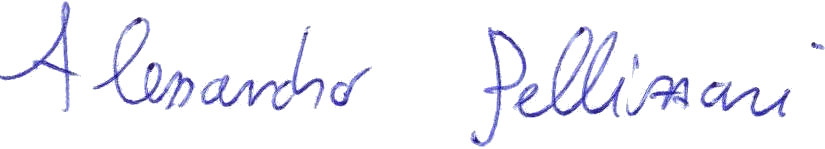 Alessandro Pellizzari